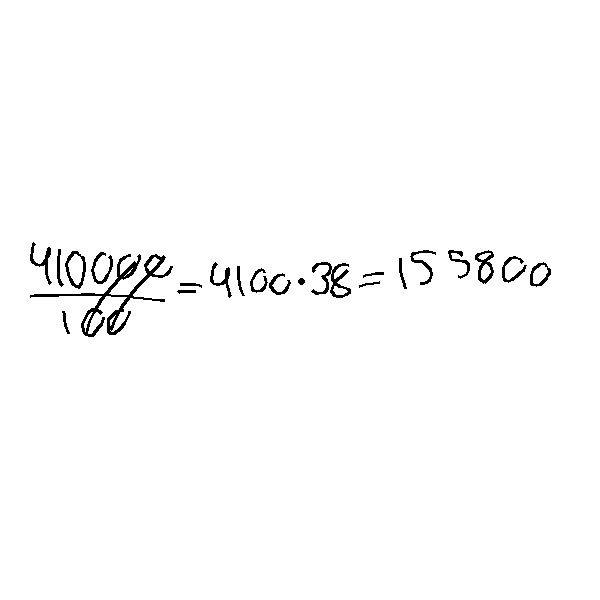 410000
100
= 4100·38 = 155800